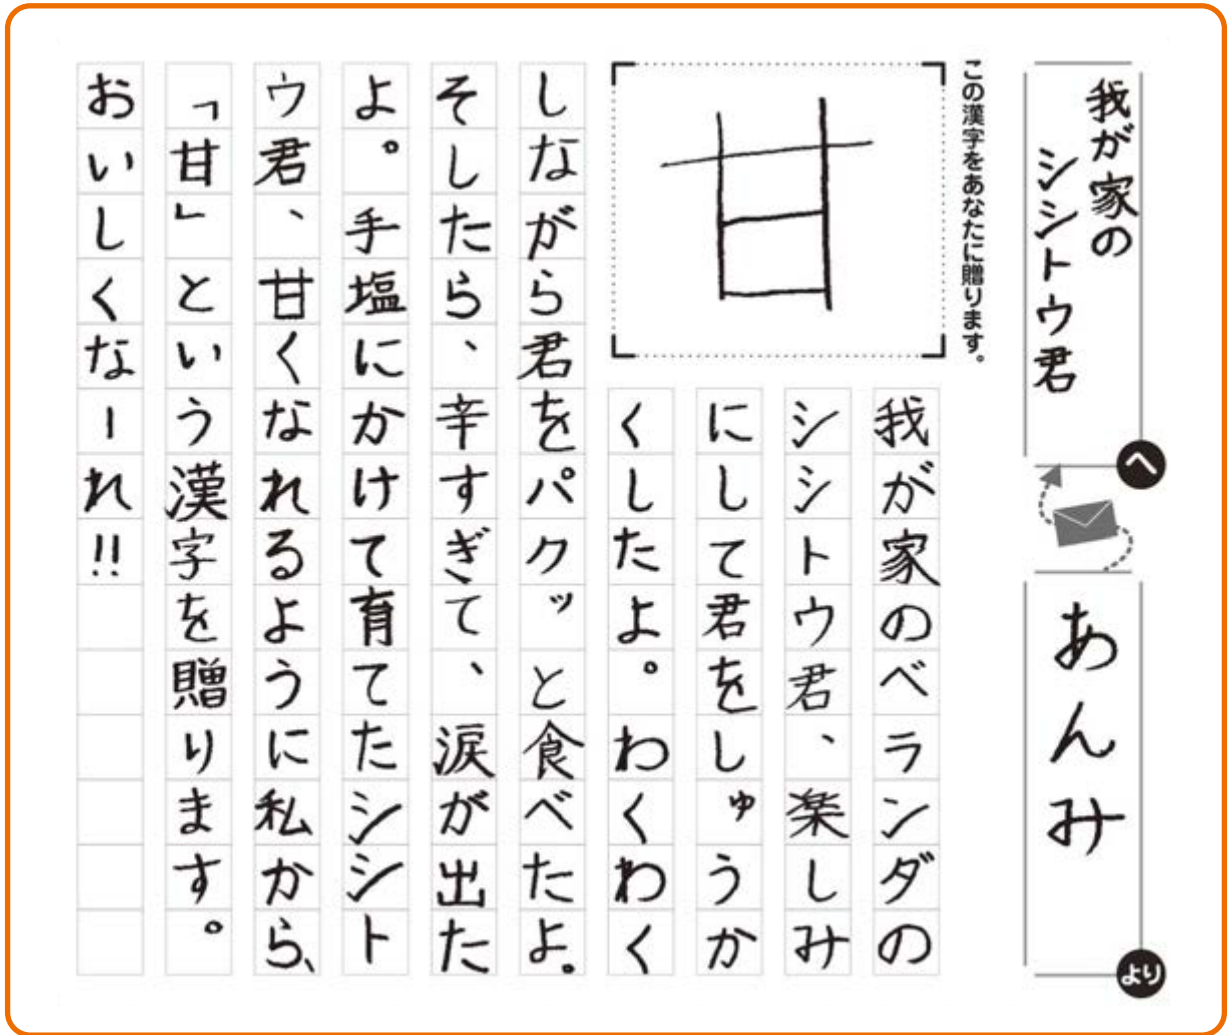 我が家の
シシトウ君
へ
あんみ
より
この漢字をあなたに贈ります。
甘
我が家のベランダの
シシトウ君、楽しみ
にして君をしゅうか
くしたよ。わくわく
しながら君をパクッと食べたよ。
そしたら、辛すぎて、涙が出た
よ。手塩にかけて育てたシシト
ウ君、甘くなれるように私から、
「甘」という漢字を贈ります。
おいしくなーれ!!